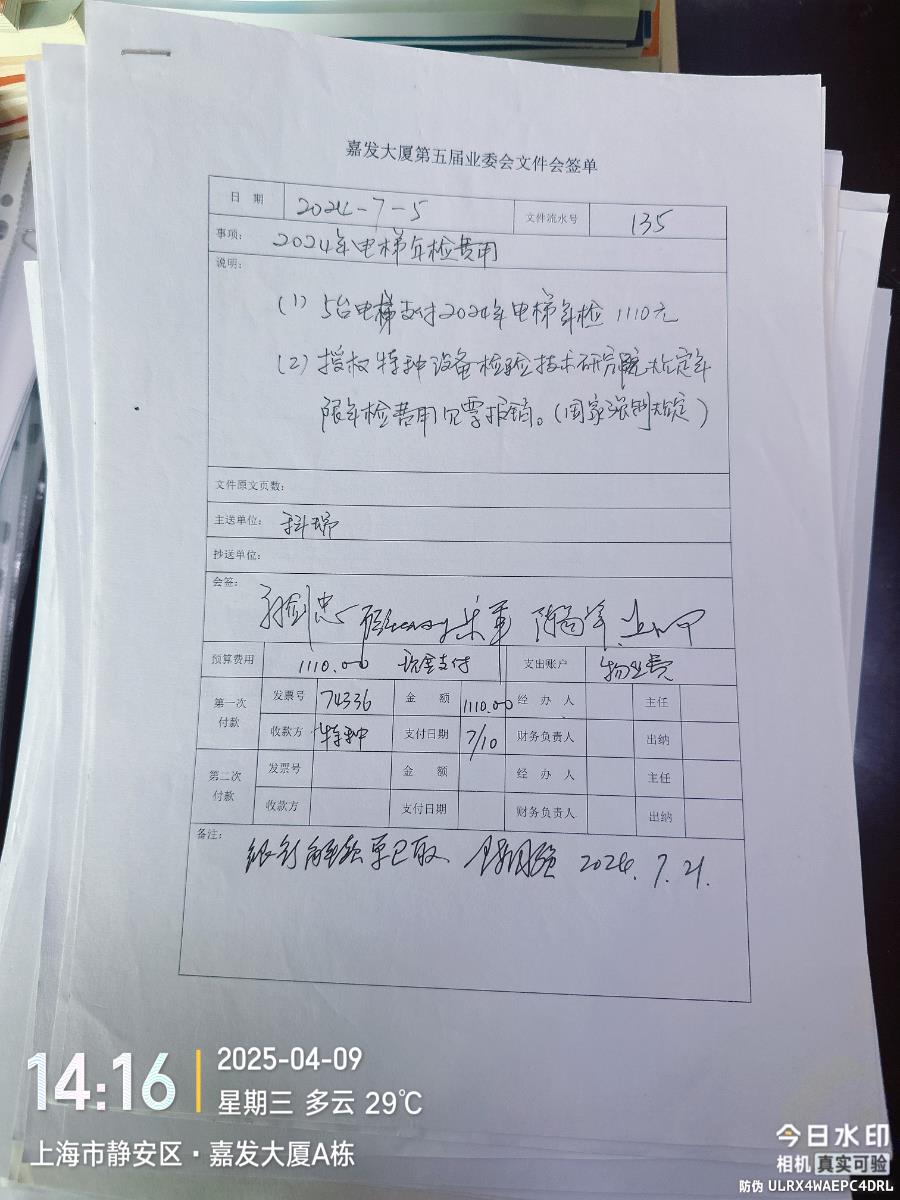 嘉发大厦第五届业委会文件会签单
日 期 2024-7-5 文件流水号 135
事项: 2024年电梯年检费用
说明:
(1) 5台电梯支付2024年电梯年检 1110元
(2) 授权特种设备检验技术研究院规定年
限年检费用见票报销。(国家强制规定)
文件原文页数:
主送单位: 科瑞
抄送单位:
会签:
预算费用 1110.00 现金支付 支出账户 物业费
第一次付款 发票号 74336 金 额 1110.00 经 办 人 主任
收款方 特种 支付日期 7/10 财务负责人 出纳
第二次付款 发票号 金 额 经 办 人 主任
收款方 支付日期 财务负责人 出纳
备注:
银行 票已取 2024.7.21.
14:16 2025-04-09
星期三 多云 29℃
上海市静安区·嘉发大厦A栋
今日水印
相机 真实可验
防伪 ULRX4WAEPC4DRL